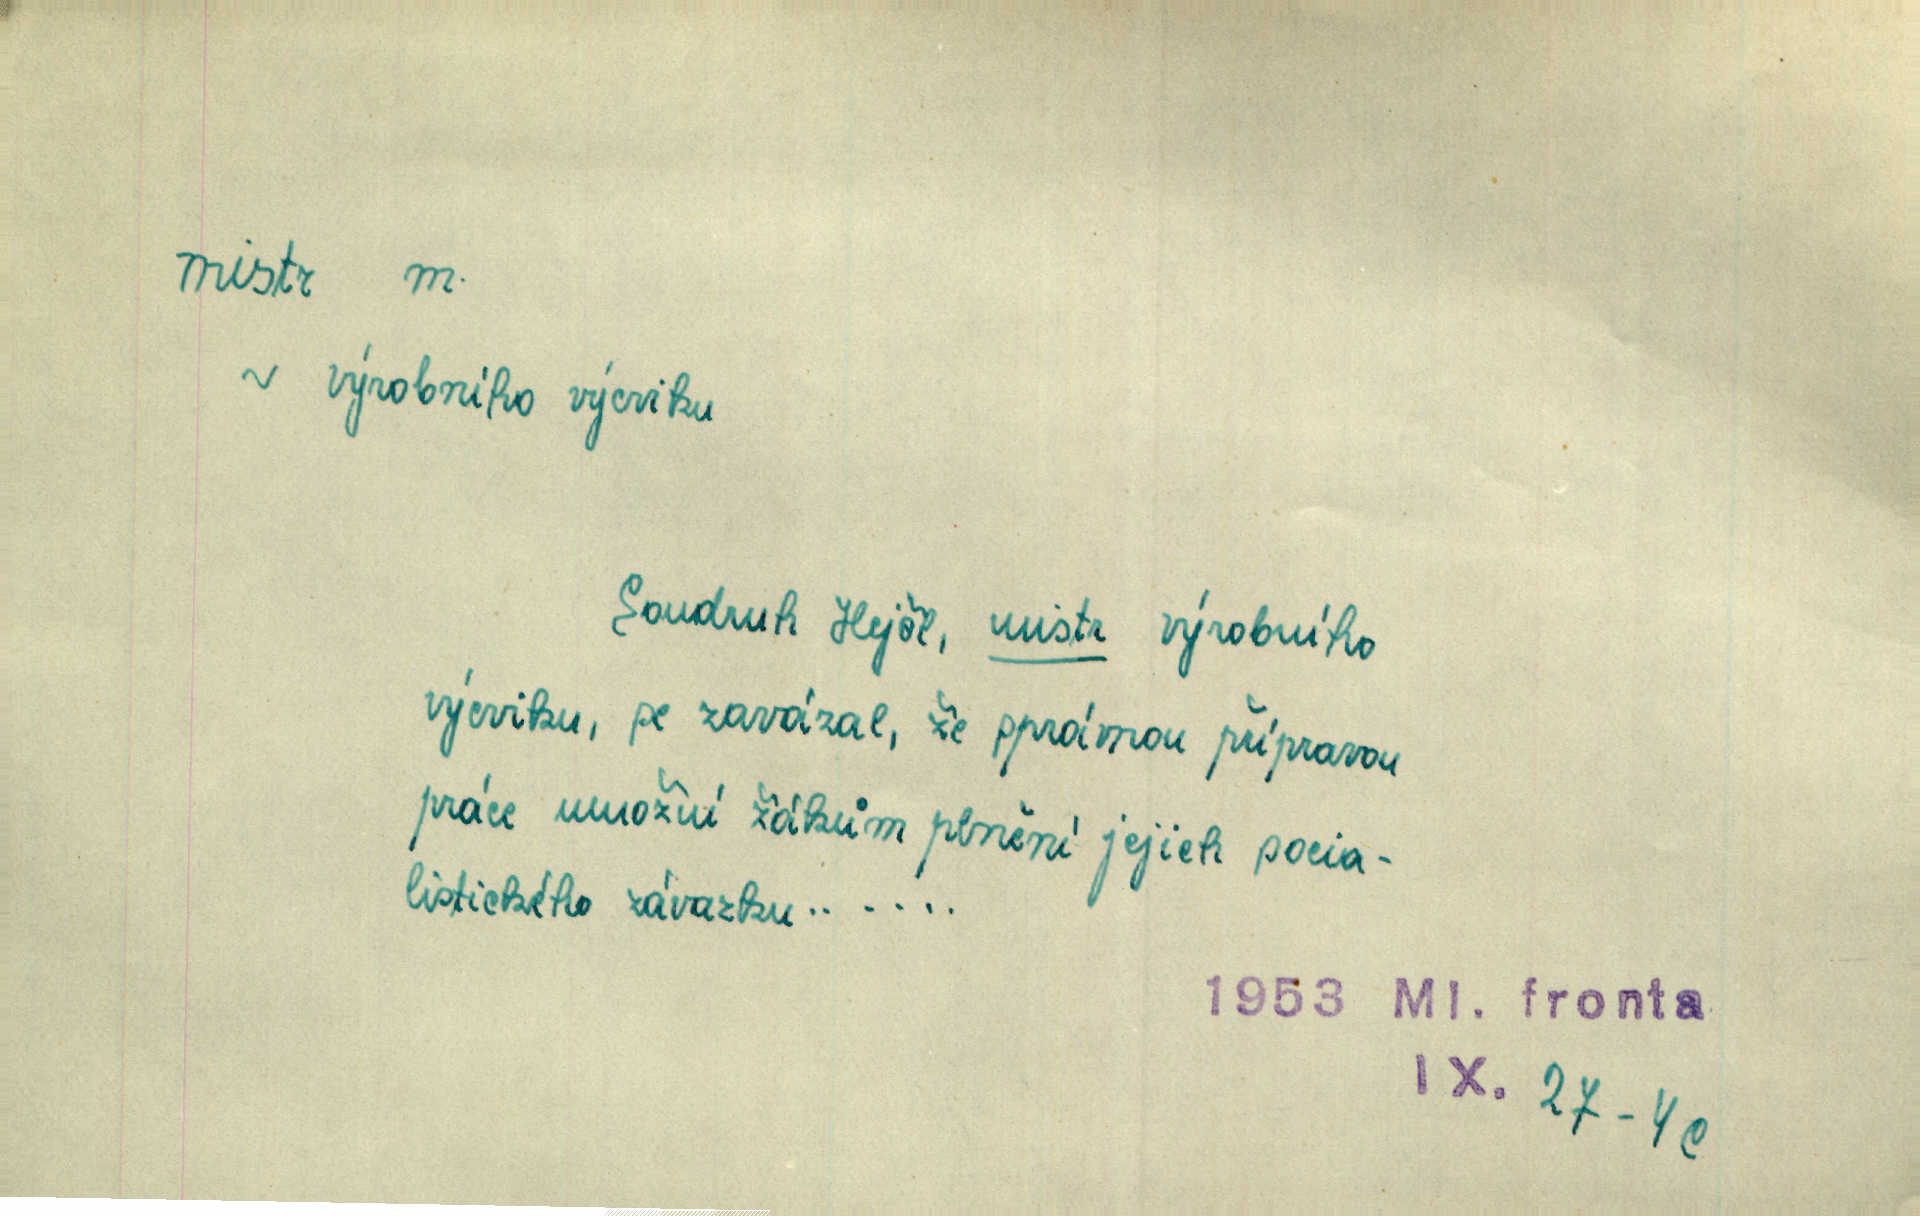 mistr m.
~ výrobního výcviku
Soudruh Hejčl, mistr výrobního
výcviku, se zavázal, že správnou přípravou
práce umožní žákům plnění jejich socia-
listického závazku.. . . . .
1953 Ml. fronta
IX. 27-4c